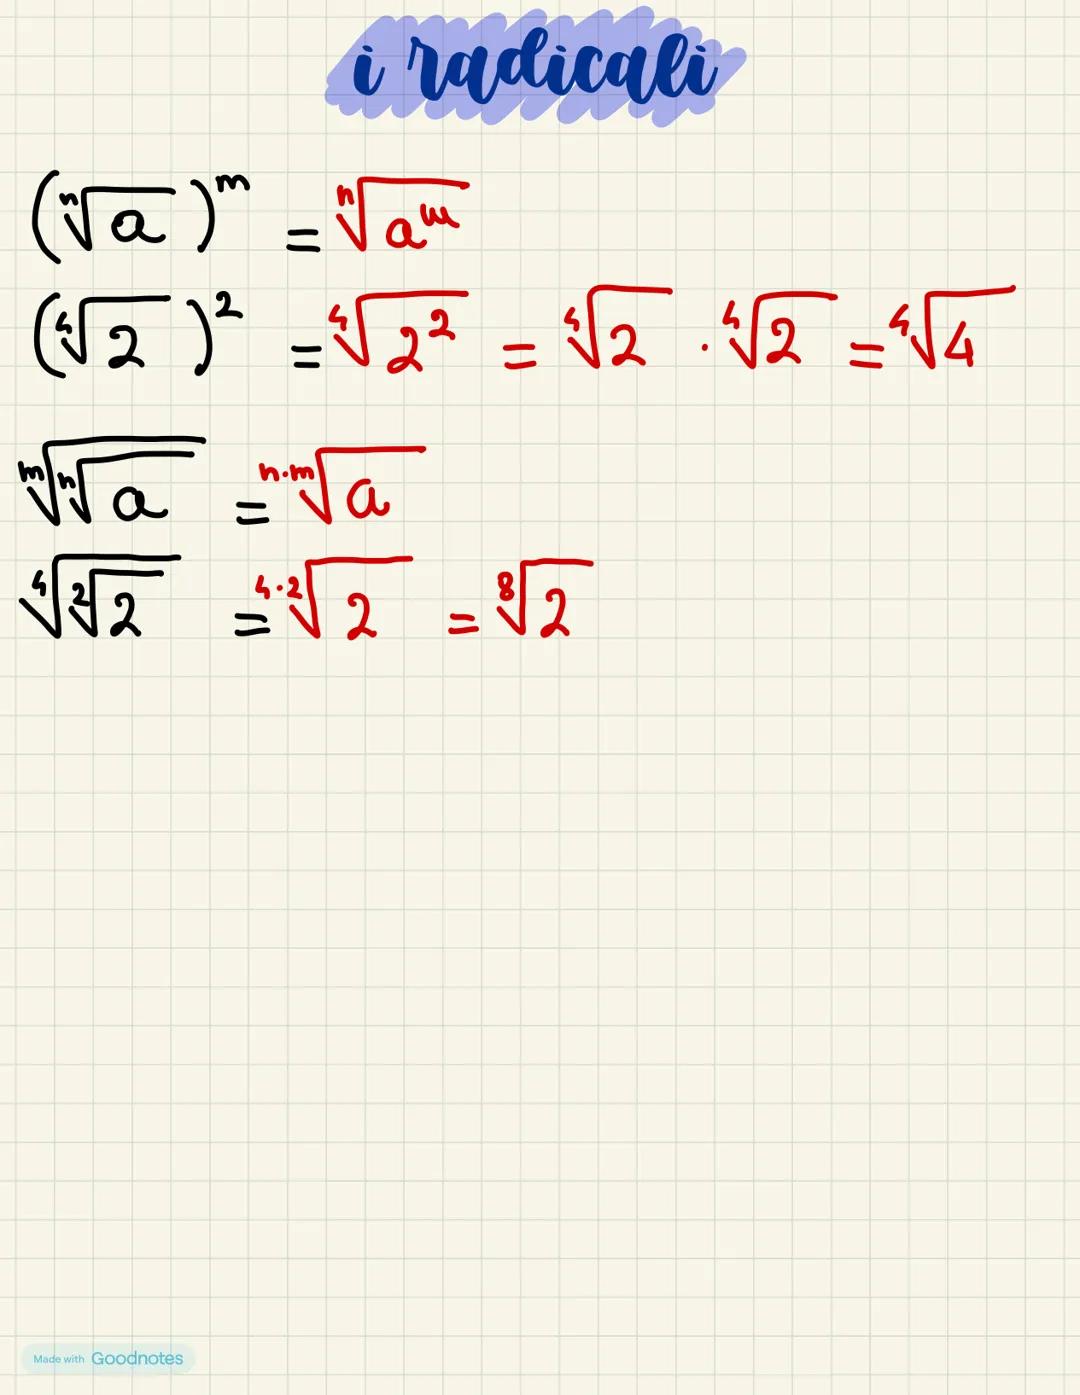 i radicali
(ⁿ√a)ᵐ = ⁿ√aᵐ
(⁴√2)² = ⁴√2² = ⁴√2 · ⁴√2 = ⁴√4
ᵐ√ⁿ√a = ⁿ·ᵐ√a
⁴√²√2 = ⁴·²√2 = ⁸√2
Made with Goodnotes